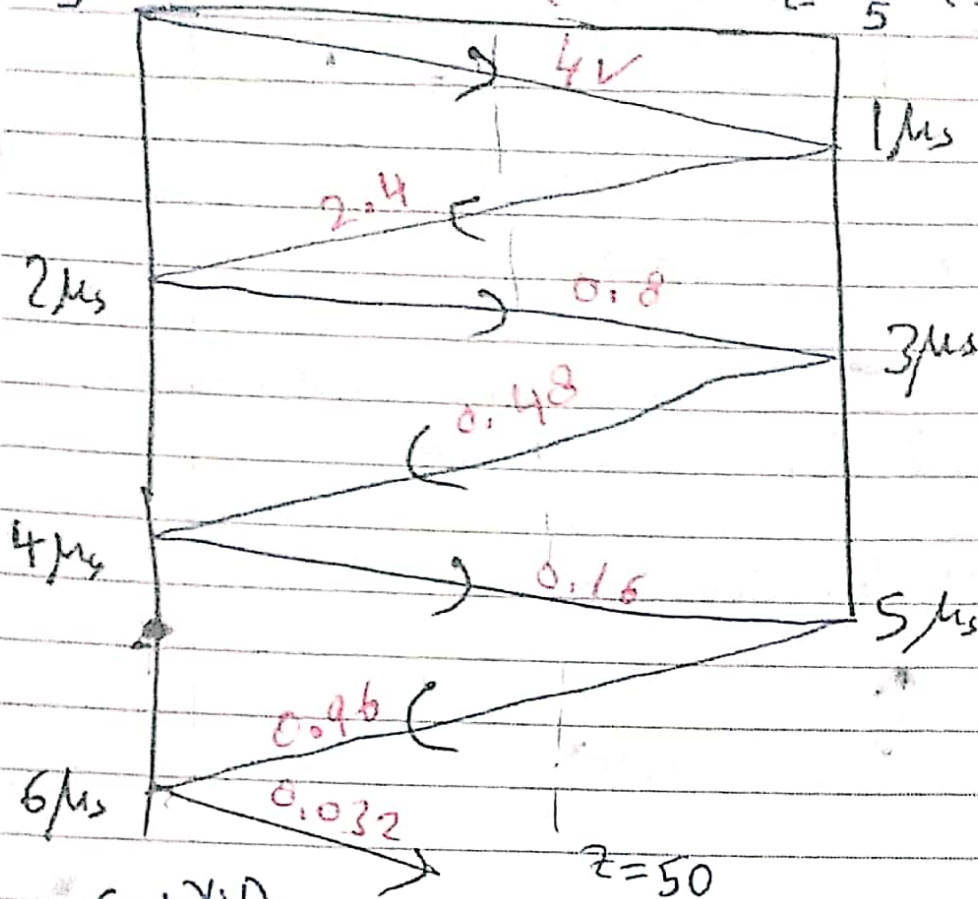 5
4V
1μs
2.4
2μs
0.8
3μs
0.48
4μs
0.16
5μs
0.96
6μs
0.032
z=50